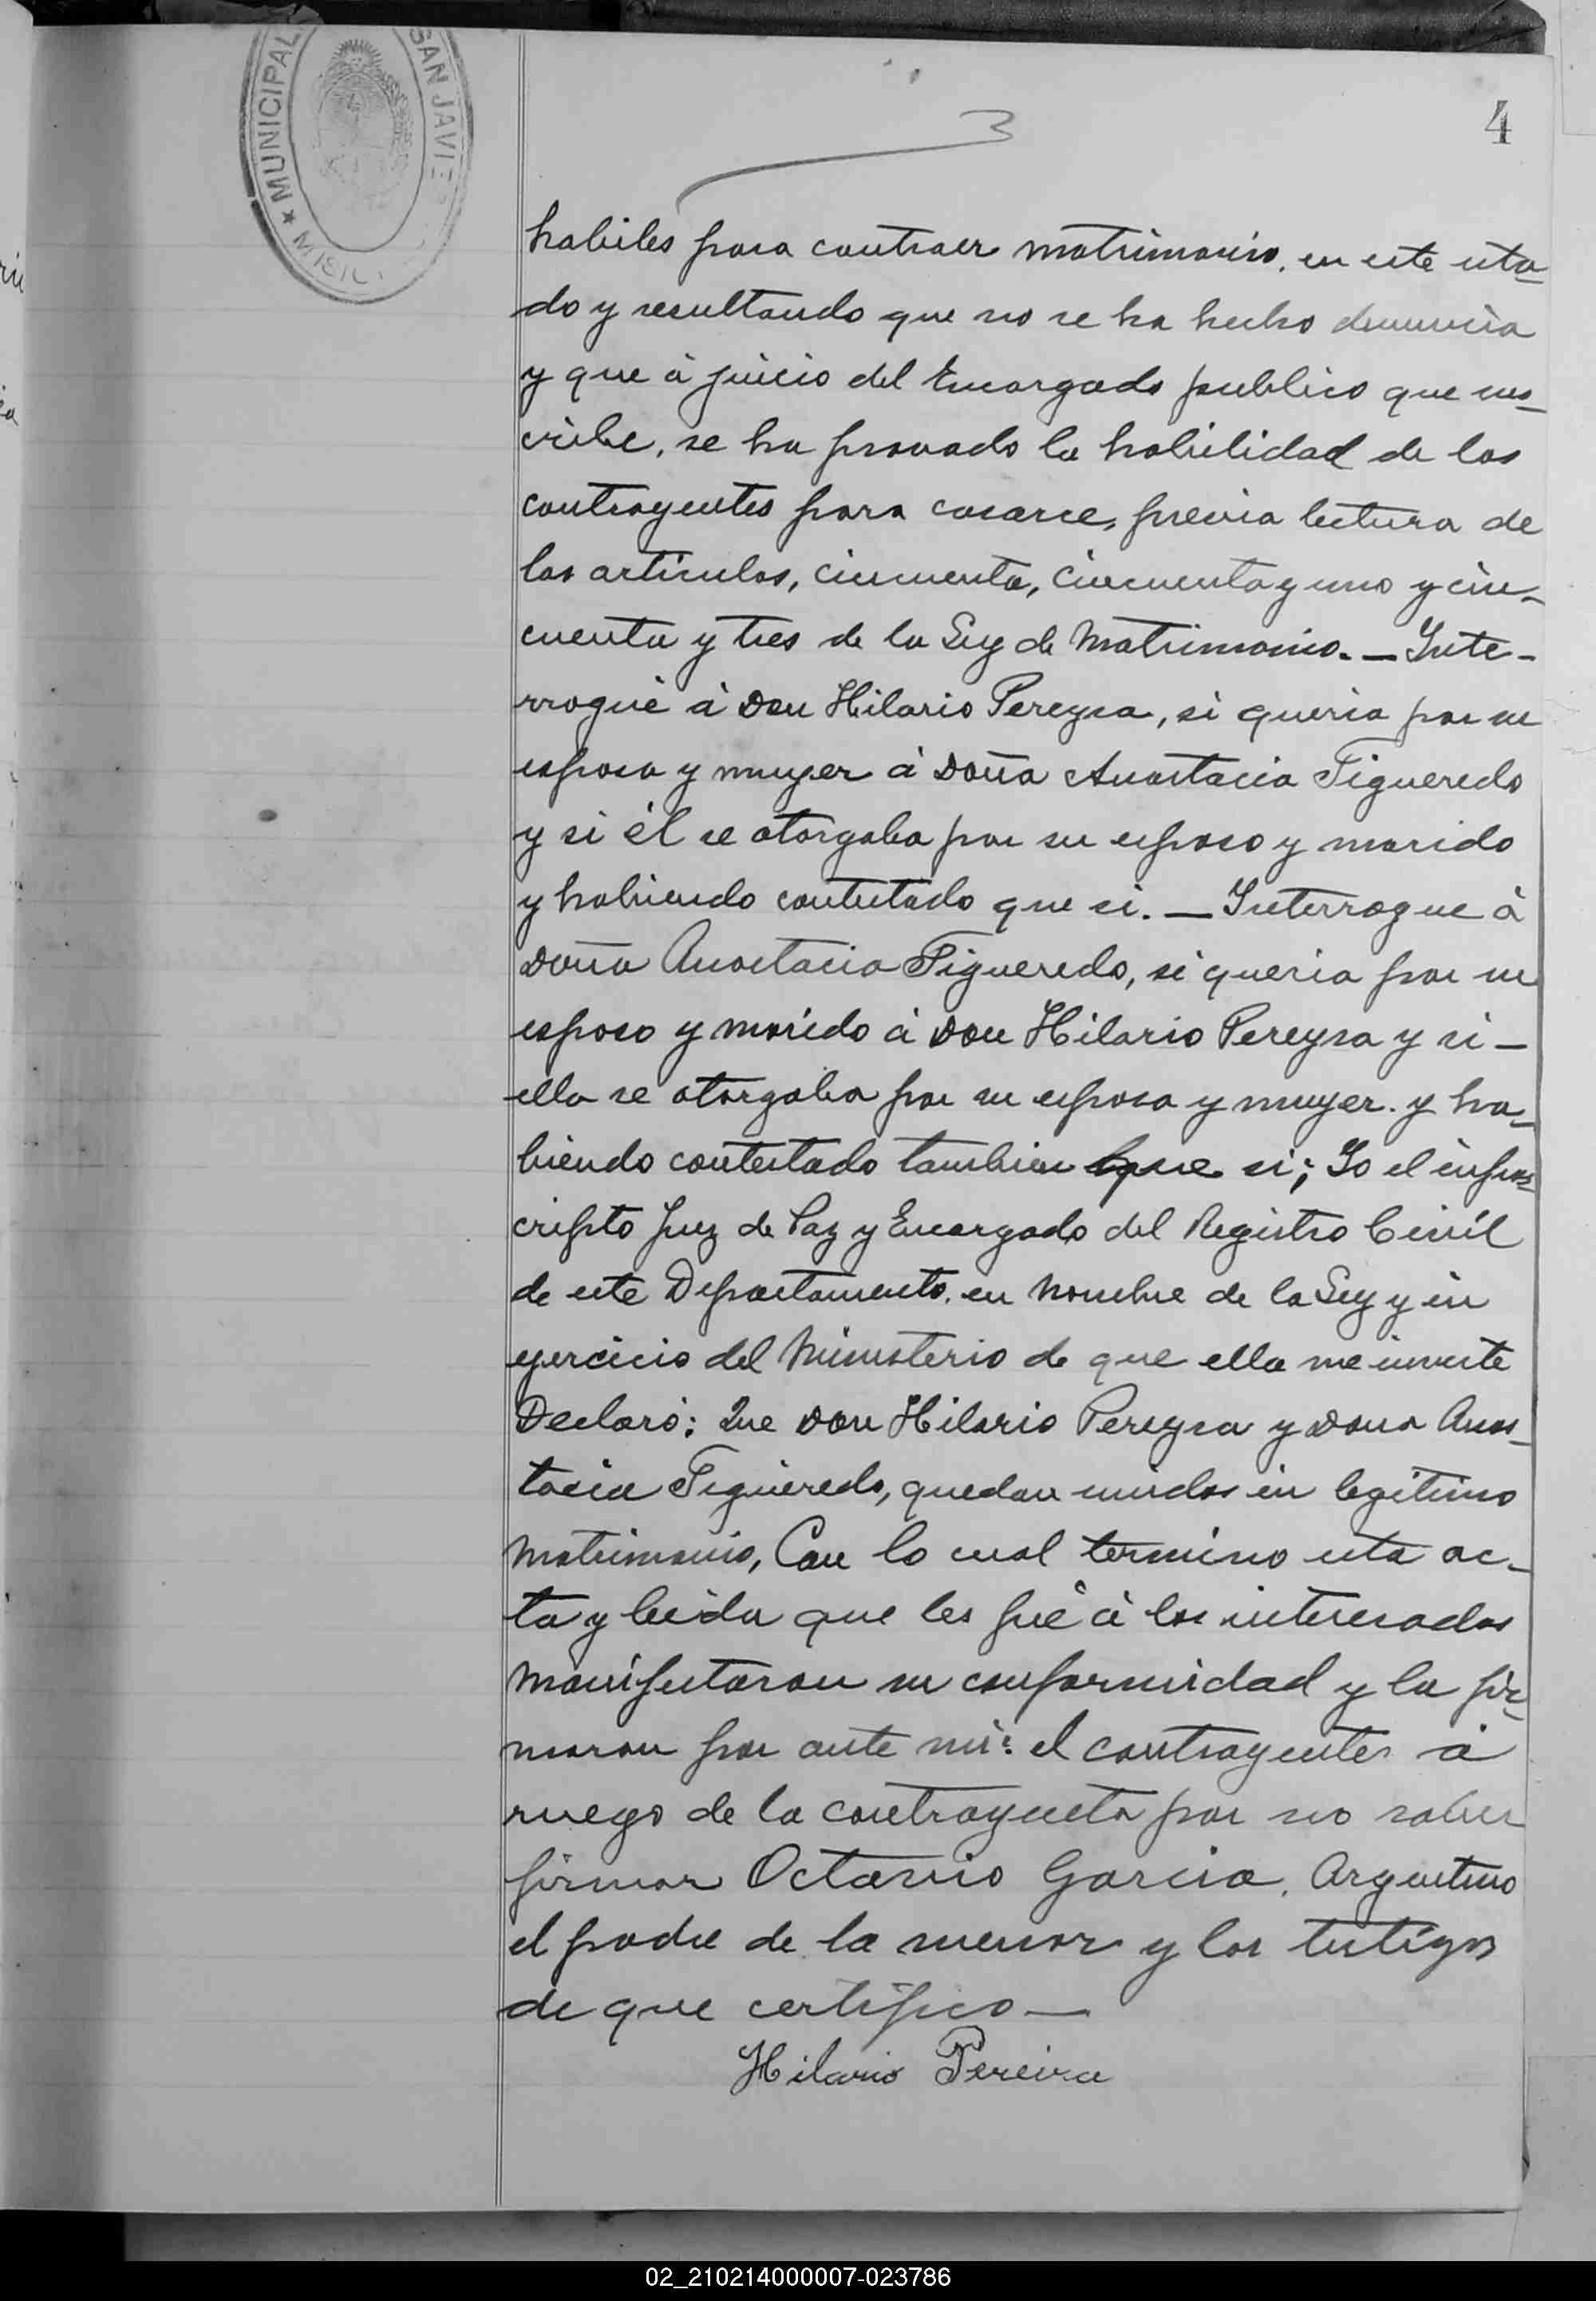 MUNICIPAL SAN JAVIE
★ MISI
3
4
habiles para contraer matrimonio. en este esta-
do y resultando que no se ha hecho denuncia
y que à juicio del Encargado publico que sus-
cribe, se ha provado la habilidad de los
contrayentes para casarce, previa lectura de
los articulos, cincuenta, cincuenta y uno y cin-
cuenta y tres de la Ley de Matrimonio. — Inte-
rroguè à Don Hilario Pereyra, si queria por su
esposa y muger à Doña Anastacia Figueredo
y si èl se otorgaba por su esposo y marido
y habiendo contestado que si. — Interrogue à
Doña Anastacia Figueredo, si queria por su
esposo y marido à Don Hilario Pereyra y si —
ella se otorgaba por su esposa y muger. y ha-
biendo contestado tambien que si; Yo el infras-
cripto Juez de Paz y Encargado del Registro Civil
de este Departamento. en nombre de la Ley y en
egercicio del Ministerio de que ella me inviste
Declaró: Que Don Hilario Pereyra y Dona Anas-
tacia Figueredo, quedan unidos en legitimo
Matrimonio, Con lo cual termino esta ac-
ta y leida que les fuè à los interesados
manifestaron su conformidad y la fir-
maron por ante mi: el contrayente à
ruego de la contrayenta por no saber
firmar Octavio Garcia. Argentino
el padre de la menor y los testigos
de que certifico —
Hilario Pereira
02_210214000007-023786